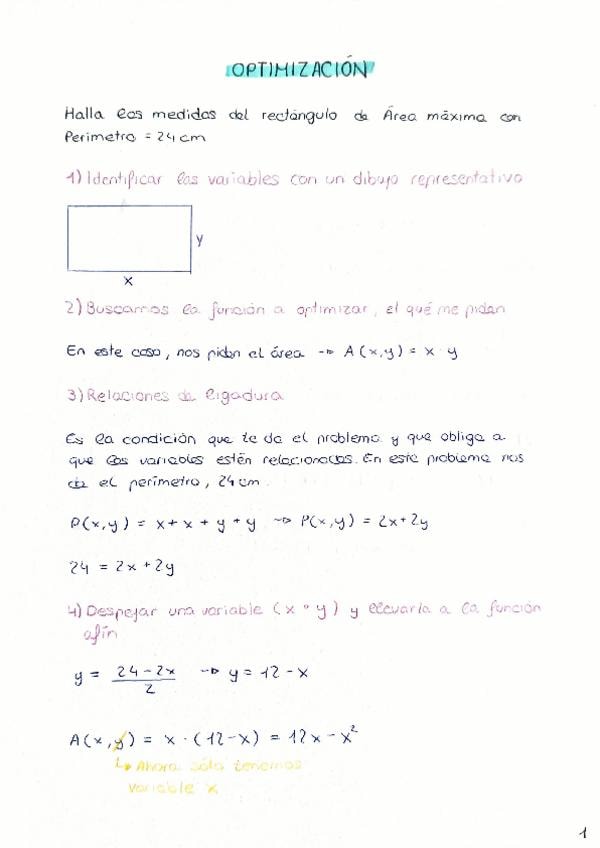 OPTIMIZACIÓN
Halla las medidas del rectángulo de Área máxima con
Perímetro = 24 cm
1) Identificar las variables con un dibujo representativo
y
x
2) Buscamos la función a optimizar, el qué me piden
En este caso, nos piden el área → A(x,y) = x · y
3) Relaciones de ligadura
Es la condición que te da el problema y que obliga a
que las variables estén relacionadas. En este problema nos
da el perímetro, 24 cm.
P(x,y) = x + x + y + y → P(x,y) = 2x + 2y
24 = 2x + 2y
4) Despejar una variable (x o y) y llevarla a la función
afín
y = (24 - 2x)/2 → y = 12 - x
A(x,y) = x · (12 - x) = 12x - x²
↳ Ahora sólo tenemos
variable x
1